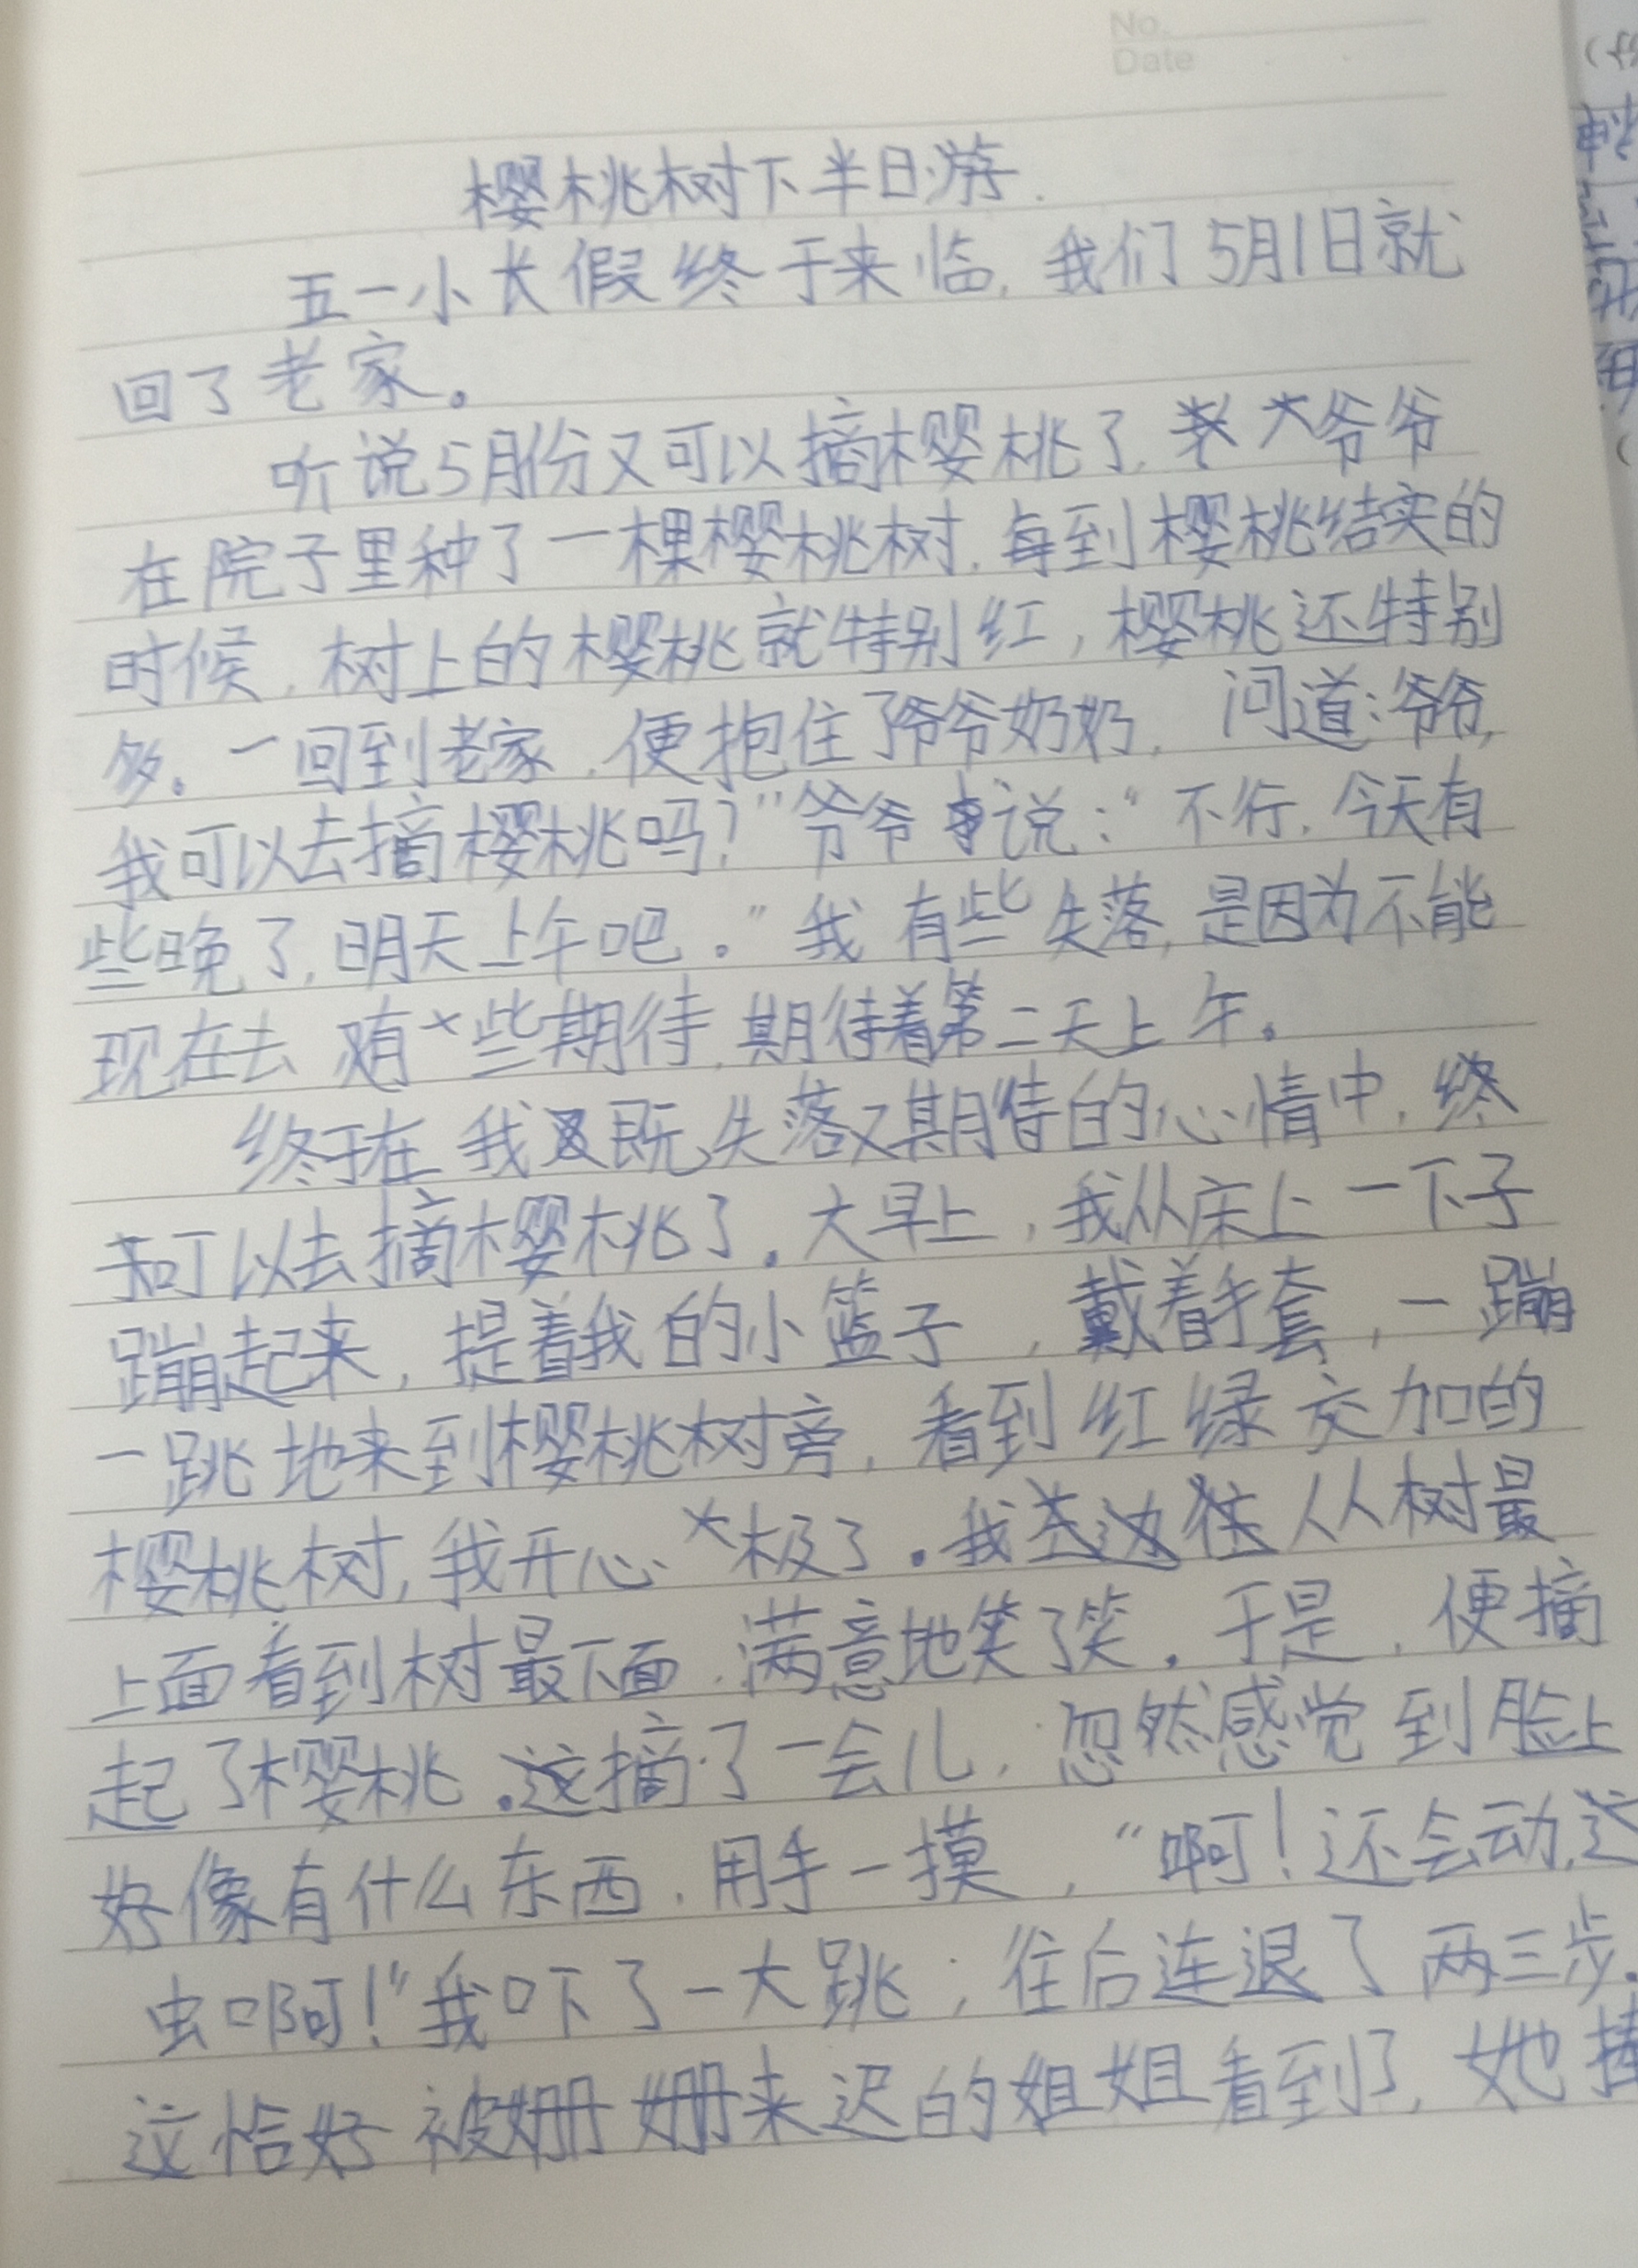 No.
Date
樱桃树下半日游.
五一小长假终于来临,我们5月1日就
回了老家。
听说5月份又可以摘樱桃了,大爷爷
在院子里种了一棵樱桃树,每到樱桃结实的
时候,树上的樱桃就特别红,樱桃还特别
多。一回到老家,便抱住了爷爷奶奶,问道:爷爷,
我可以去摘樱桃吗?”爷爷说:“不行,今天有
些晚了,明天上午吧。”我有些失落,是因为不能
现在去,有些期待,期待着第二天上午。
终于在我既失落又期待的心情中,
可以去摘樱桃了。大早上,我从床上一下子
蹦起来,提着我的小篮子,戴着手套,一蹦
一跳地来到樱桃树旁,看到红绿交加的
樱桃树,我开心极了。我从树最
上面看到树最下面,满意地笑了笑。于是,便摘
起了樱桃。摘了一会儿,忽然感觉到脸上
好像有什么东西,用手一摸,“啊!还会动,
虫啊!”我吓了一大跳;往后连退了两三步.
这恰好被姗姗来迟的姐姐看到了,她捧